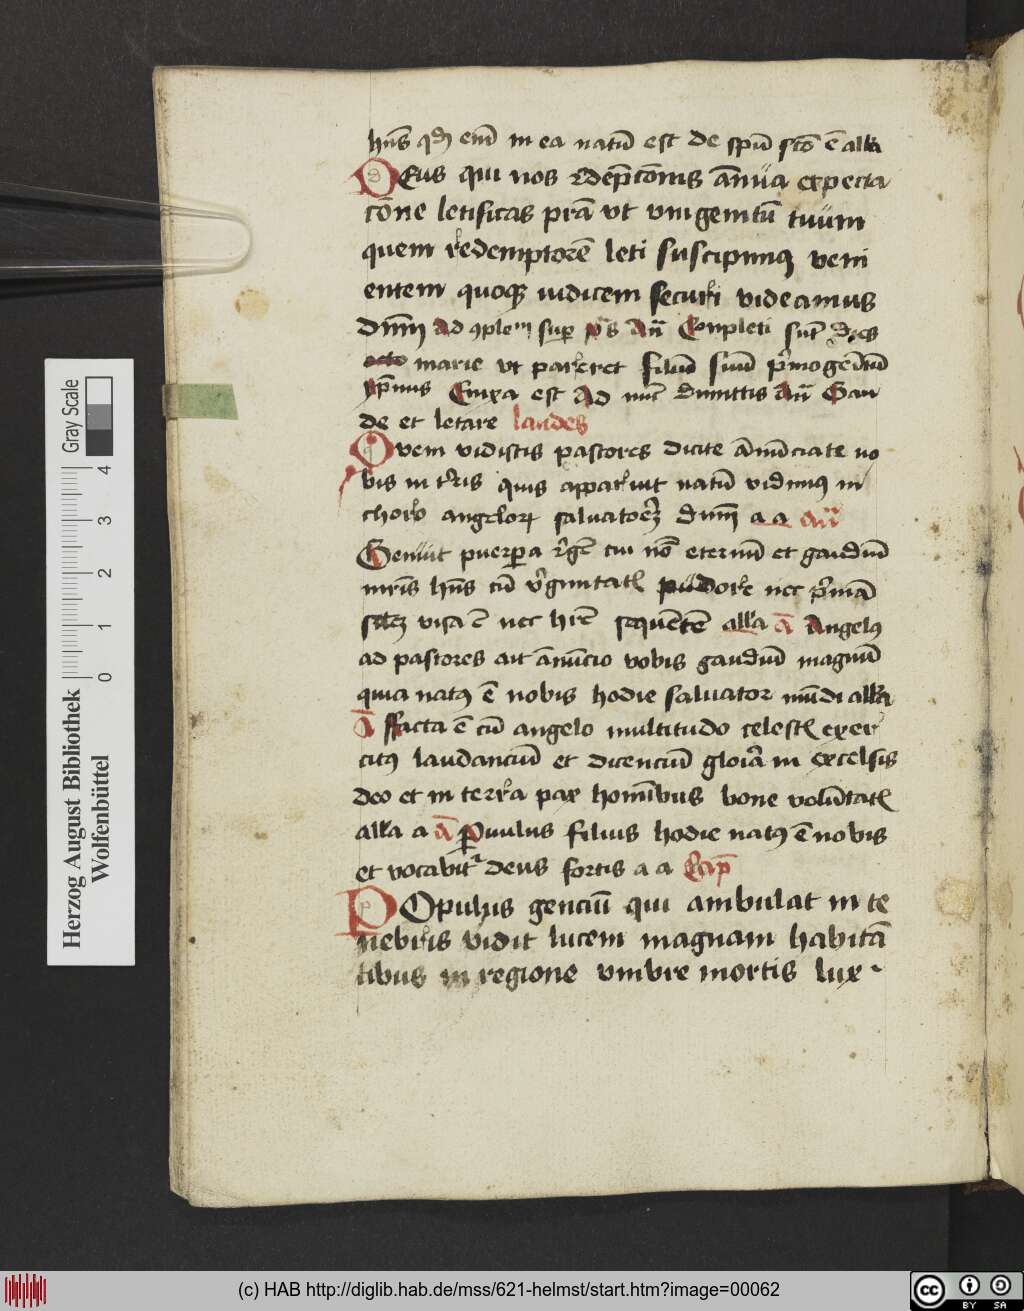 hūs qđ eni in ea natū est de spū sctō ē alla
DEus qui nos rdepcōnis ānua expecta
cōne letificas prā vt vnigenitū tuum
quem redemptorē leti suscipimus veni
entem quoque iudicem securi videamus
dnm Ad 9plem sup p̄s Añ Conpleti sūt dies
marie vt pareret filiū suū p̍mogenitū
ps nūs Enixa est Ad nūc dimittis Añ Gau
de et letare laudes
Quem vidistis pastores dicite ānūciate no
bis in tr̄is quis apparuit natū vidimus in
choro angelorum saluatorē dnm a a añ
Genuit puerpera rgē cui nōē eternū et gaudiū
mr̄is hūs cū v̍ginitatis pudore nec p̍mā
silem visa ē nec hr̄e sequētē alla ā Angelus
ad pastores ait ānūcio vobis gaudiū magnū
quia natus ē nobis hodie saluator mūdi alla
ā ffacta ē cū angelo multitudo celestis exer
citus laudanciū et dicenciū gloria in excelsis
deo et in terra pax hominibus bone volūtatis
alla a ā Paruulus filius hodie natus ē nobis
et vocabit deus fortis a a Cap
POpulus genciū qui ambulat in te
nebris vidit lucem magnam habitā
tibus in regione vmbre mortis lux
Herzog August Bibliothek
Wolfenbüttel
Gray Scale
0 1 2 3 4
(c) HAB http://diglib.hab.de/mss/621-helmst/start.htm?image=00062
cc BY SA